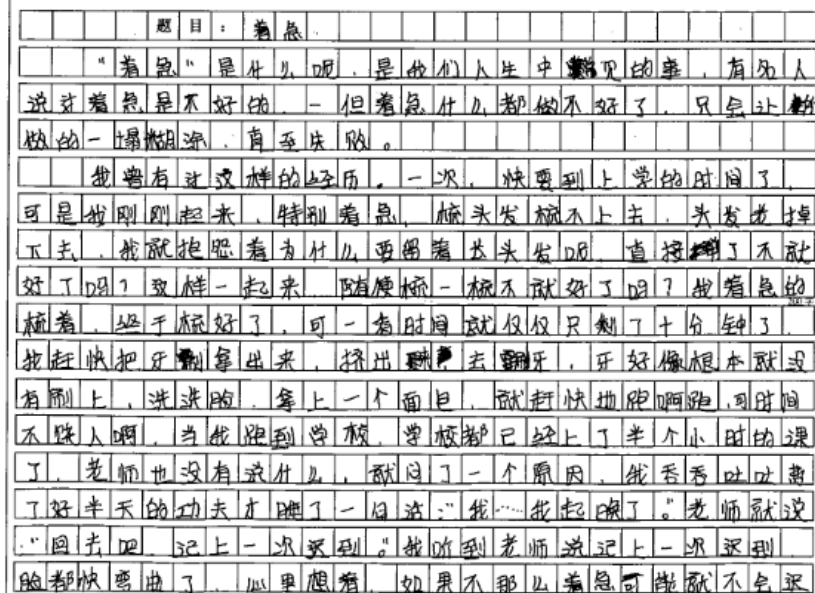 题目：着急
“着急”是什么呢，是我们人生中常见的事，有名人
说过着急是不好的，一但着急什么都做不好了，只会让
做的一塌糊涂，直至失败。
我曾有过这样的经历。一次，快要到上学的时间了，
可是我刚刚起来，特别着急，梳头发梳不上去，头发老掉
下去，我就抱怨着为什么要留着长头发呢，直接了不就
好了吗？这样一起来随便梳一梳不就好了吗？我着急的
梳着，终于梳好了，可一看时间就仅仅只剩了十分钟了，
我赶快把牙刷拿出来，挤出去刷牙，牙好像根本就没
有刷上，洗洗脸，拿上一个面包，就赶快地跑啊跑，可时间
不饶人啊，当我跑到学校，学校都已经上了半个小时的课
了，老师也没有说什么，就问了一个原因，我吞吞吐吐
了好半天的功夫才了一句话：“我……我起晚了。”老师就说
：“回去吧，记上一次迟到。”我听到老师说记上一次迟到，
脸都快弯曲了，心里想着，如果不那么着急可能就不会迟